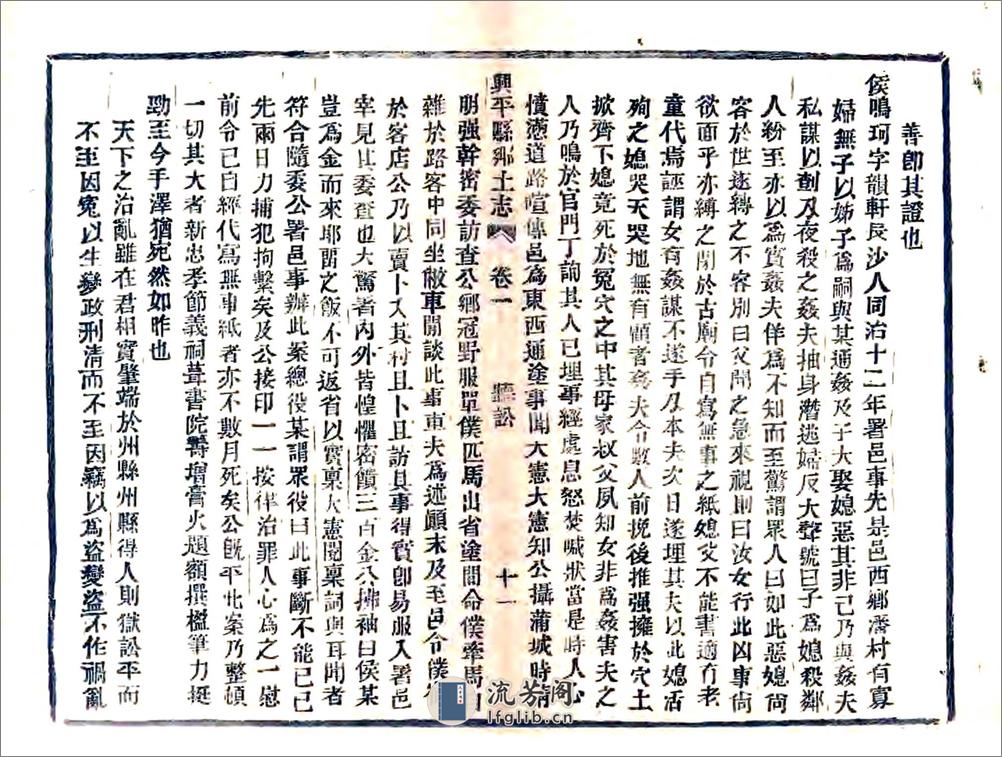 善卽其證也
侯鳴珂字韻軒長沙人同治十二年署邑事先是邑西鄉潘村有寡
婦無子以姊子爲嗣與某通姦及子大娶媳惡其非己乃與姦夫
私謀以劊刀夜殺之姦夫抽身潛逃婦反大聲號曰子爲媳殺鄰
人紛至亦以爲實姦夫佯爲不知而至驚謂眾人曰如此惡媳尙
容於世遂縛之不容別曰父聞之急來視則曰汝女行此凶事尙
欲面乎亦縛之閉於古廟令自寫無事之紙媳父不能書適有老
童代焉誣謂女有姦謀不遂手刃本夫次日遂埋其夫以此媳活
殉之媳哭天哭地無有顧者姦夫令數人前挽後推强擁於穴土
掀齊下媳竟死於寃穴之中其母家叔父夙知女非爲姦害夫之
人乃鳴於官門丁諭其人已埋事經處息怒焚喊狀當是時人心
憤懣道路喧傳邑爲東西通途事聞大憲大憲知公攝蒲城時精
明强幹密委訪查公鄉冠野服單僕匹馬出省塗間命僕牽馬
雜於路客中同坐敝車閒談此事車夫爲述顚末及至邑令僕
於客店公乃以賣卜入其村且卜且訪其事得實卽易服入署邑
宰見其委查也大驚署內外皆惶懼密饋三百金公拂袖曰侯某
豈爲金而來耶留之飯不可返省以實稟大憲閱稟詞與耳聞者
符合隨委公署邑事辦此案總役某謂眾役曰此事斷不能已已
先兩日力捕犯拘繫矣及公接印一一按律治罪人心爲之一慰
前令已自經代寫無事紙者亦不數月死矣公旣平此案乃整頓
一切其大者新忠孝節義祠葺書院籌增膏火題額撰楹筆力挺
勁至今手澤猶宛然如昨也
天下之治亂雖在君相實肇端於州縣州縣得人則獄訟平而
不至因寃以生變政刑清而不至因竊以爲盜變盜不作禍亂
興平縣鄉土志 卷一 聽訟 十一
流芳閣
lfglib.cn